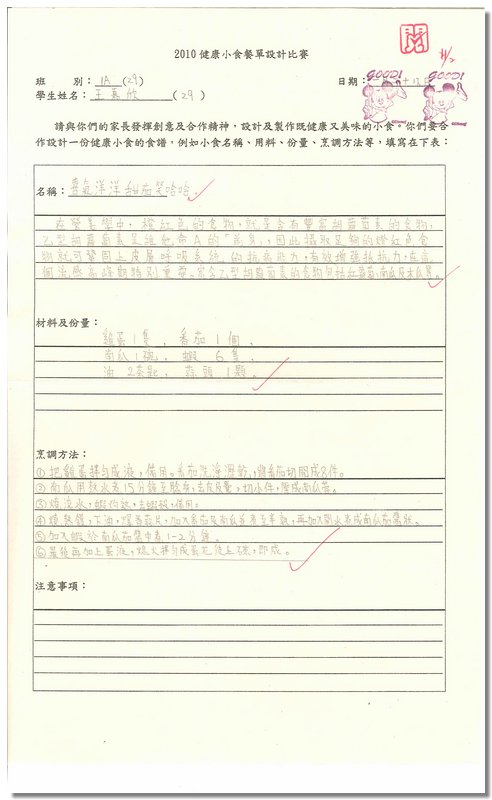 2010 健康小食餐單設計比賽
班 別：1A (29)
日期：
學生姓名：王嘉欣 (29)
GOOD! GOOD!
請與你們的家長發揮創意及合作精神，設計及製作既健康又美味的小食。你們要合
作設計一份健康小食的食譜，例如小食名稱、用料、份量、烹調方法等，填寫在下表：
名稱：喜氣洋洋甜茄笑哈哈
在營養學中，橙紅色的食物，就是含有豐富胡蘿蔔素的食物，
乙型胡蘿蔔素是維他命A的「前身」，因此攝取足夠的橙紅色食
物就可鞏固上皮層呼吸系統的抵病能力，有效增強抵抗力，在這
個流感高峰期特別重要。富含乙型胡蘿蔔素的食物包括紅蘿蔔、南瓜及木瓜等。
材料及份量：
雞蛋1隻， 番茄1個，
南瓜1碗， 蝦 6隻，
油 2茶匙， 蒜頭 1顆。
烹調方法：
①把雞蛋攪勻成液，備用。番茄洗淨瀝乾，將番茄切開成8件。
②南瓜用熱水煮15分鐘至腍身，去皮及囊，切小件，壓成南瓜蓉。
③燒滾水，蝦灼熟，去蝦殼，備用。
④燒熱鑊，下油，爆香蒜片，加入番茄及南瓜蓉煮至
⑤加入蝦於南瓜茄醬中煮1-2分鐘。
⑥最後再加上蛋液，熄火攪勻成蛋花後上碟，即成。
注意事項：